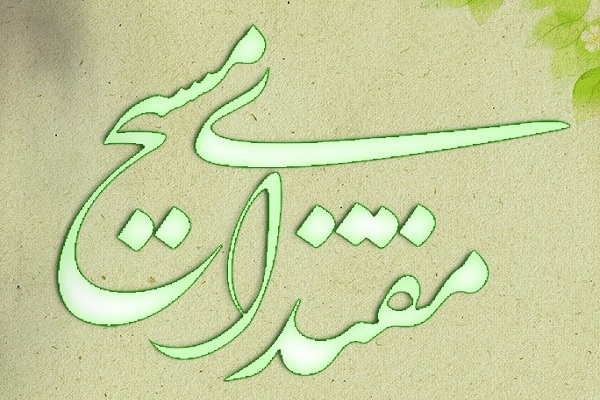 مقتدای مسیح